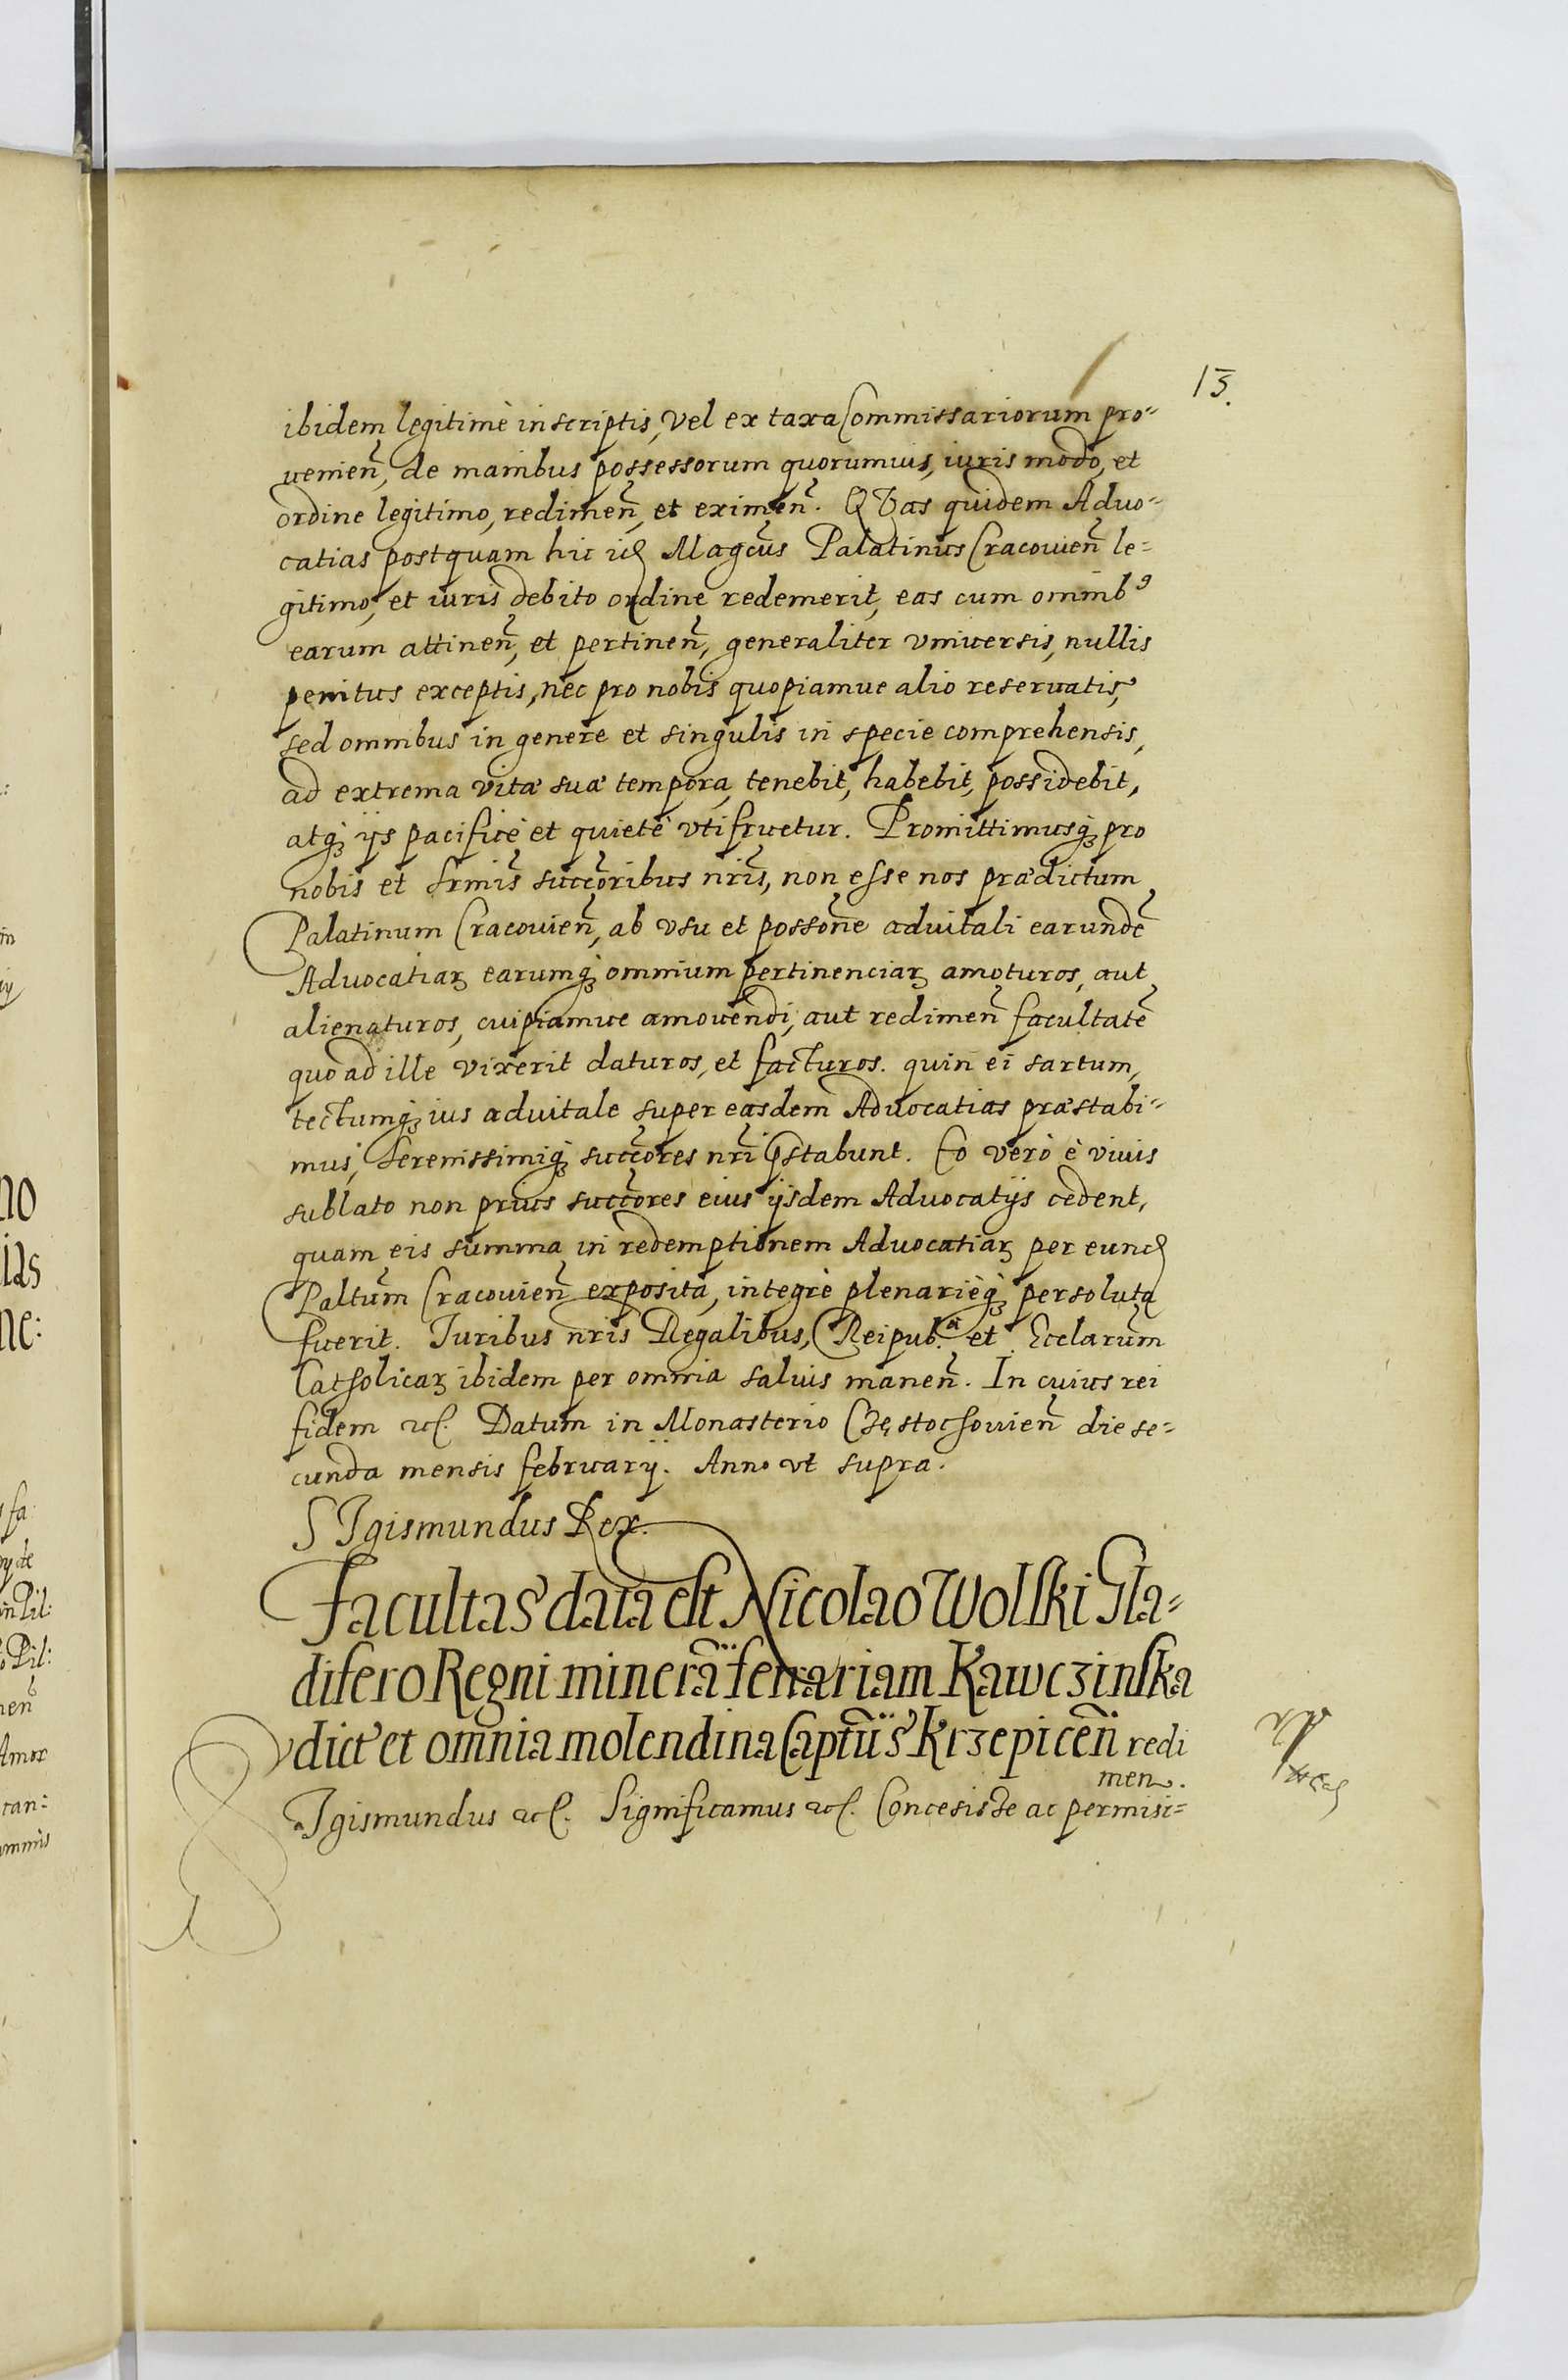 13.
ibidem legitimè inscriptis, vel ex taxa Commissariorum pro-
venieñ, de manibus possessorum quorumvis, iuris modo, et
ordine legitimo, redimeñ, et eximeñ. QVas quidem Advo-
catias postquam hic id Magcus Palatinus Cracovieñ le-
gitimo, et iuris debito ordine redemerit, eas cum omnibꝰ
earum attineñ, et pertineñ, generaliter vniversis, nullis
penitus exceptis, nec pro nobis quopiamue alio reservatis,
sed omnibus in genere et singulis in specie comprehensis,
ad extrema vitæ suæ tempora, tenebit, habebit, possidebit,
atqꝫ ijs pacificè et quietè vtifruetur. Promittimusqꝫ pro
nobis et srmis̃ succoribus nris̃, non esse nos prædictum
Palatinum Cracovieñ, ab vsu et possõne advitali earundẽ
Advocatiaꝝ earumqꝫ omnium pertinenciaꝝ amoturos, aut
alienaturos, cuipiamve amovendi, aut redimeñ facultatẽ
quoad ille vixerit daturos, et facturos. quin ei sartum,
tectumqꝫ ius advitale super easdem Advocatias præstabi-
mus, Serenissimiqꝫ succores nri p̃stabunt. Eo verò è vivis
sublato non prius succores eius ijsdem Advocatijs cedent,
quam eis summa in redemptionem Advocatiaꝝ per eund
Paltum Cracovieñ exposita, integrè plenarièqꝫ persoluta
fuerit. Iuribus nris Regalibus, Reipub.ᵃ et Ecclarum
Catholicaꝝ ibidem per omnia salvis maneñ. In cuius rei
fidem etc. Datum in Monasterio Częstochovieñ die se-
cunda mensis february. Anno vt supra.
SIgismundus Rex.
Facultas data est Nicolao Wolski Gla-
difero Regni minerã ferrariam Kawczinska
dict et omnia molendina Captũs Krzepiceñ redi
men.
Igismundus etc. Significamus etc. Concesisse ac permisi-